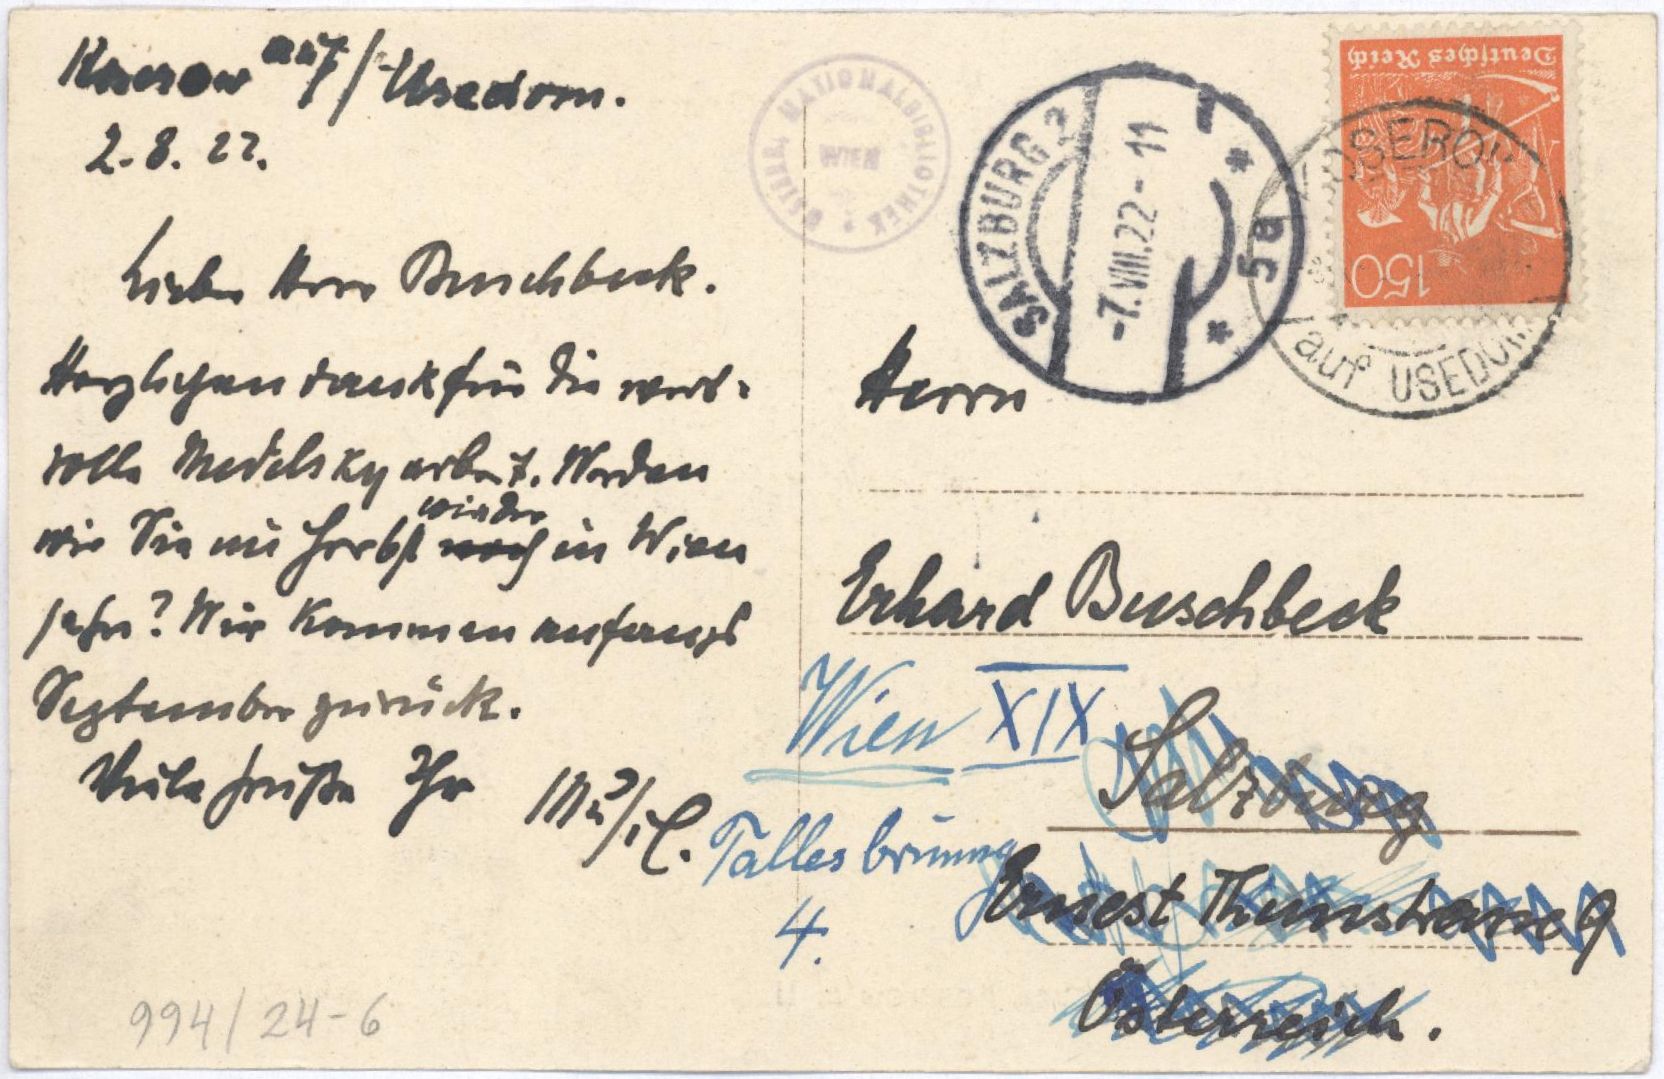 Koserow auf / Usedom.
2. 8. 22.
Lieber Herr Buschbeck.
Herzlichen dank für die wert-
volle Medelsky arbeit. Werden
wir Sie im Herbst noch wieder in Wien
sehn? Wir kommen anfangs
September zurück.
Viele Grüße Ihr
ÖSTERR. NATIONALBIBLIOTHEK
WIEN
SALZBURG 2
-7.VIII.22-11
5a
Deutsches Reich
150
KOSEROW
auf USEDOM
Herrn
Erhard Buschbeck
Wien XIX
Salzburg
Tallesbrunng
4.
Ernest Thunstrasse 9
Österreich.
994/24-6